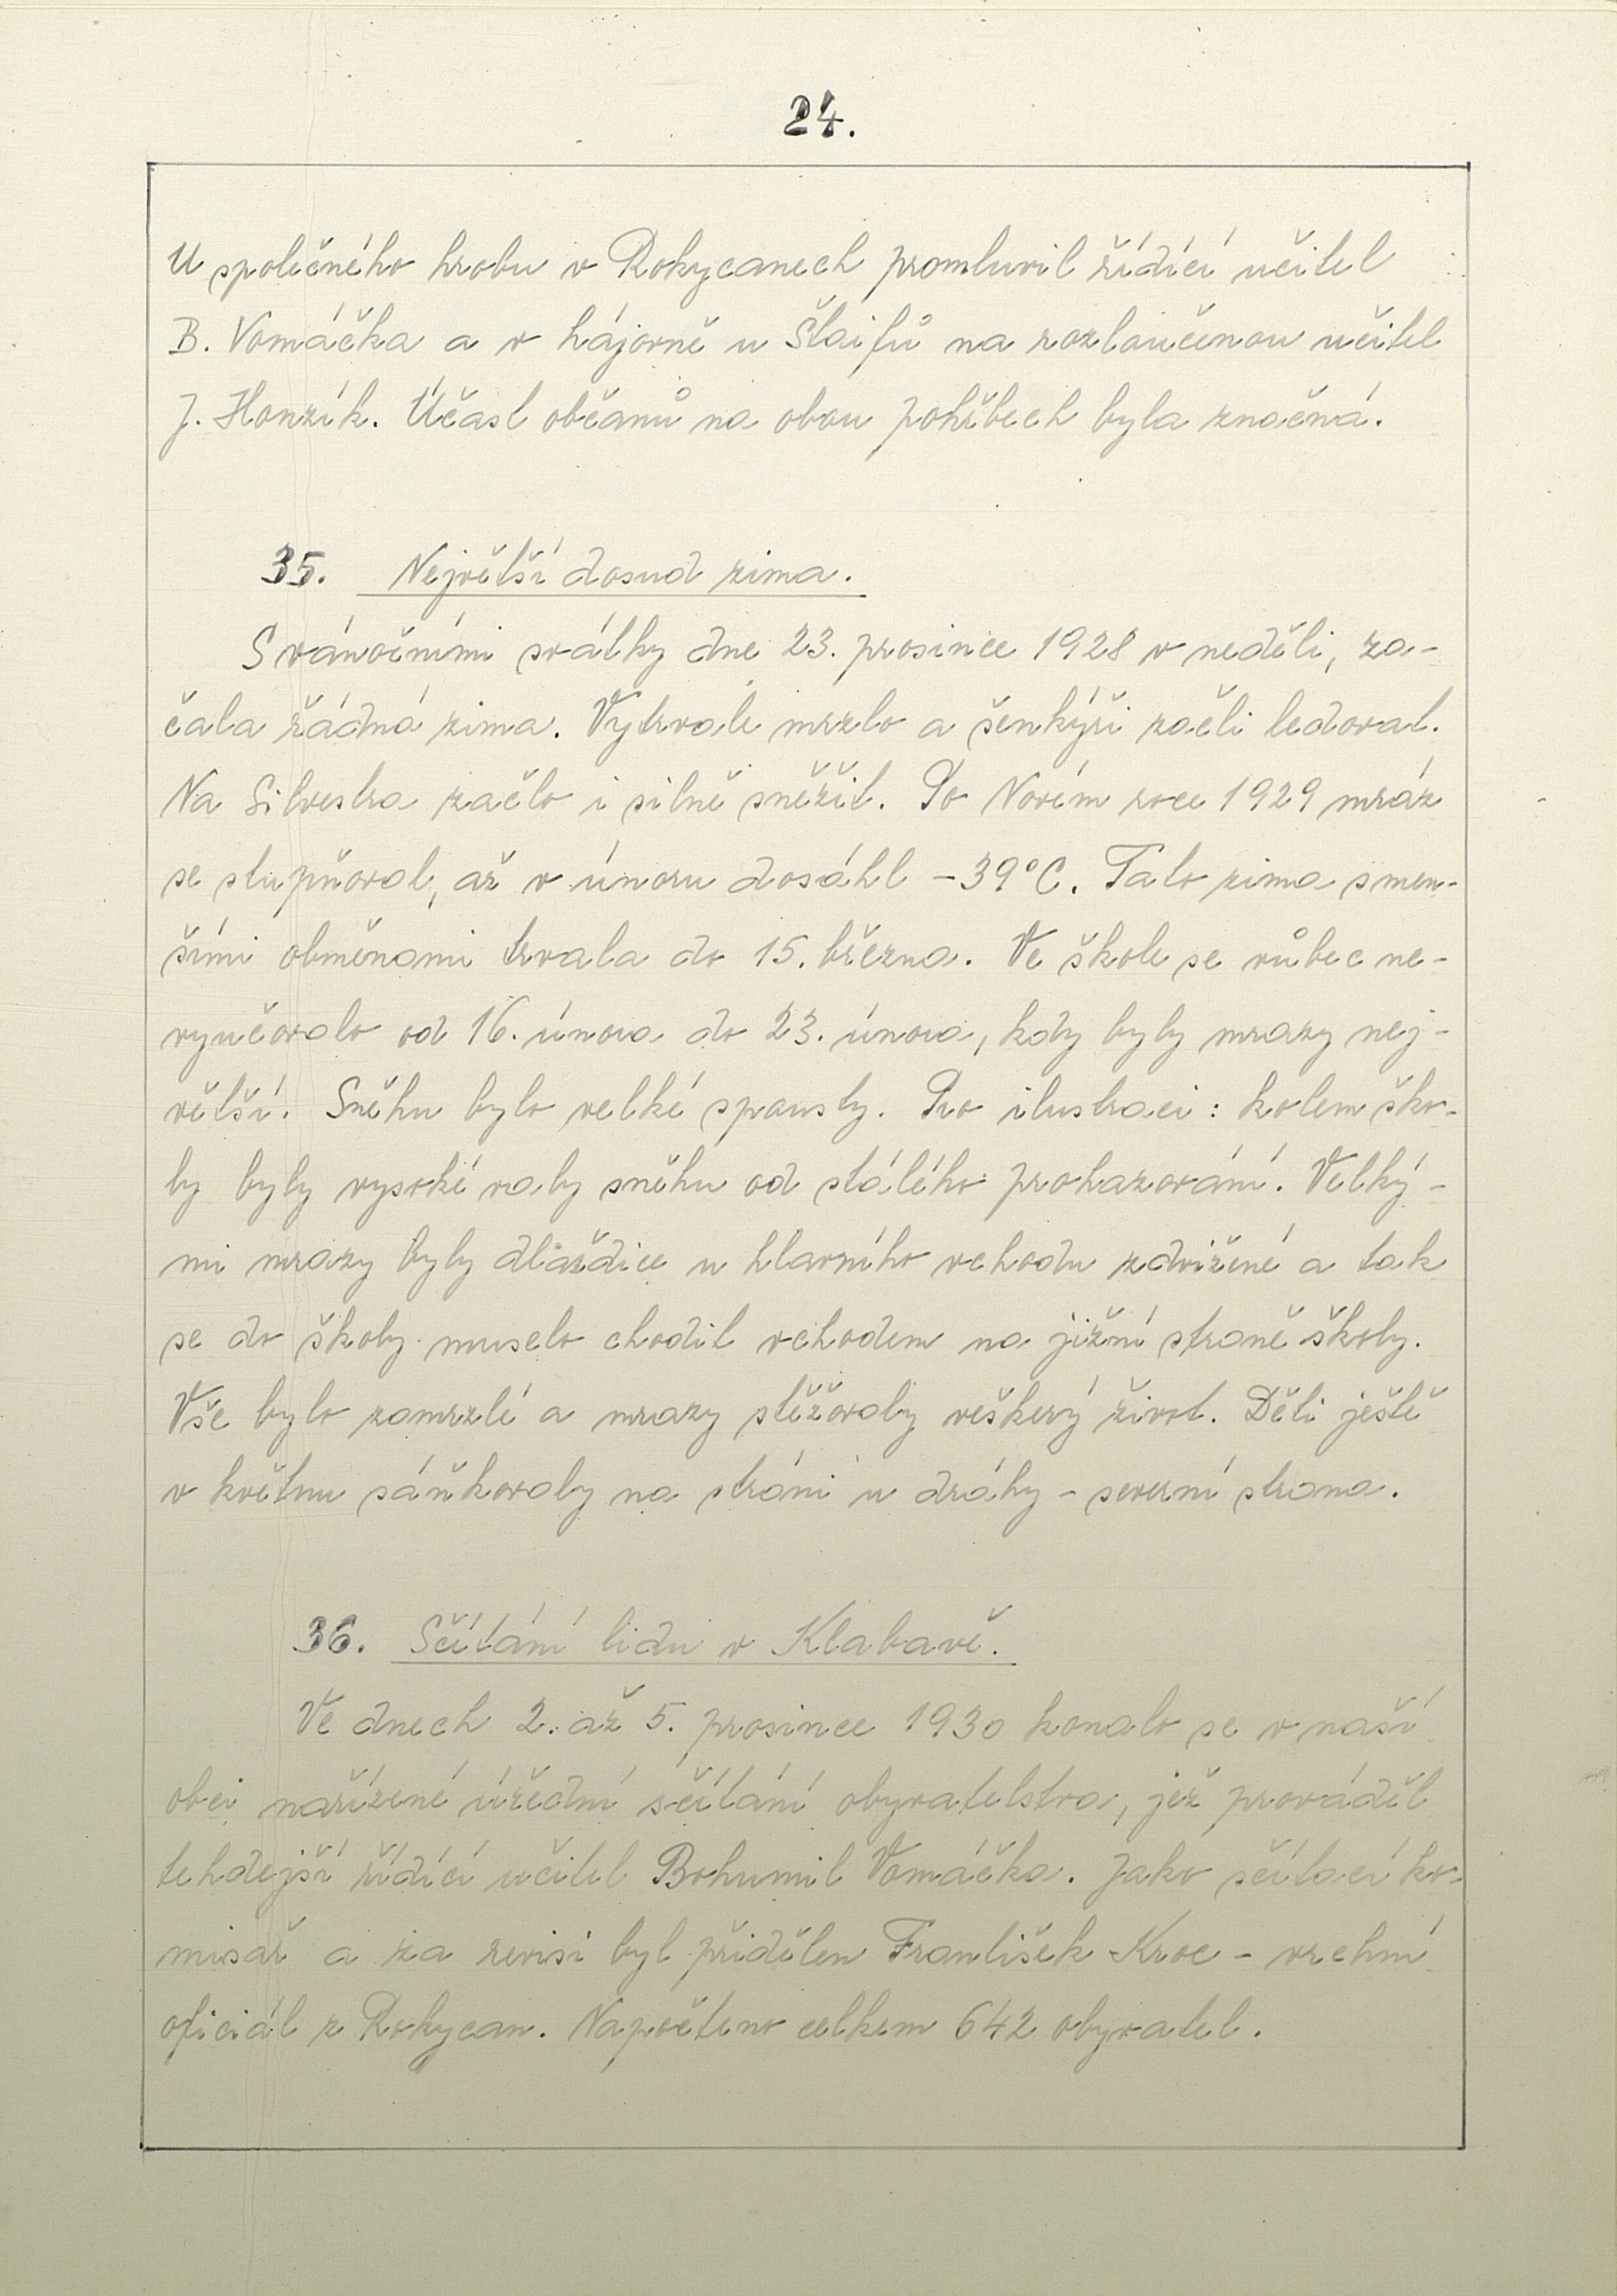 24.
U společného hrobu v Rokycanech promluvil řídící učitel
B. Vomáčka a v hájovně u Šlaifů na rozloučenou učitel
J. Honzík. Účast občanů na obou pohřbech byla značná.
35. Největší dosud zima.
S vánočními svátky dne 23. prosince 1928 v neděli, za-
čala řádná zima. Vytrvale mrzlo a šenkýři začli ledovat.
Na Silvestra začlo i silně sněžit. Po Novém roce 1929 mráz
se stupňoval, až v únoru dosáhl -39°C. Tato zima s men-
šími obměnami trvala do 15. března. Ve škole se vůbec ne-
vyučovalo od 16. února do 23. února, kdy byly mrazy nej-
větší. Sněhu bylo velké spousty. Pro ilustraci: kolem ško-
ly byly vysoké valy sněhu od stálého prohazování. Velký-
mi mrazy byly dlaždice u hlavního vchodu zdvižené a tak
se do školy muselo chodit vchodem na jižní straně školy.
Vše bylo zamrzlé a mrazy stěžovaly veškerý život. Děti ještě
v květnu sáňkovaly na stráni u dráhy - severní strana.
36. Sčítání lidu v Klabavě.
Ve dnech 2. až 5. prosince 1930 konalo se v naší
obci nařízené úřední sčítání obyvatelstva, jež prováděl
tehdejší řídící učitel Bohumil Vomáčka. Jako sčítací ko-
misař a za revisi byl přidělen František Kroc - vrchní
oficiál z Rokycan. Napočteno celkem 642 obyvatel.